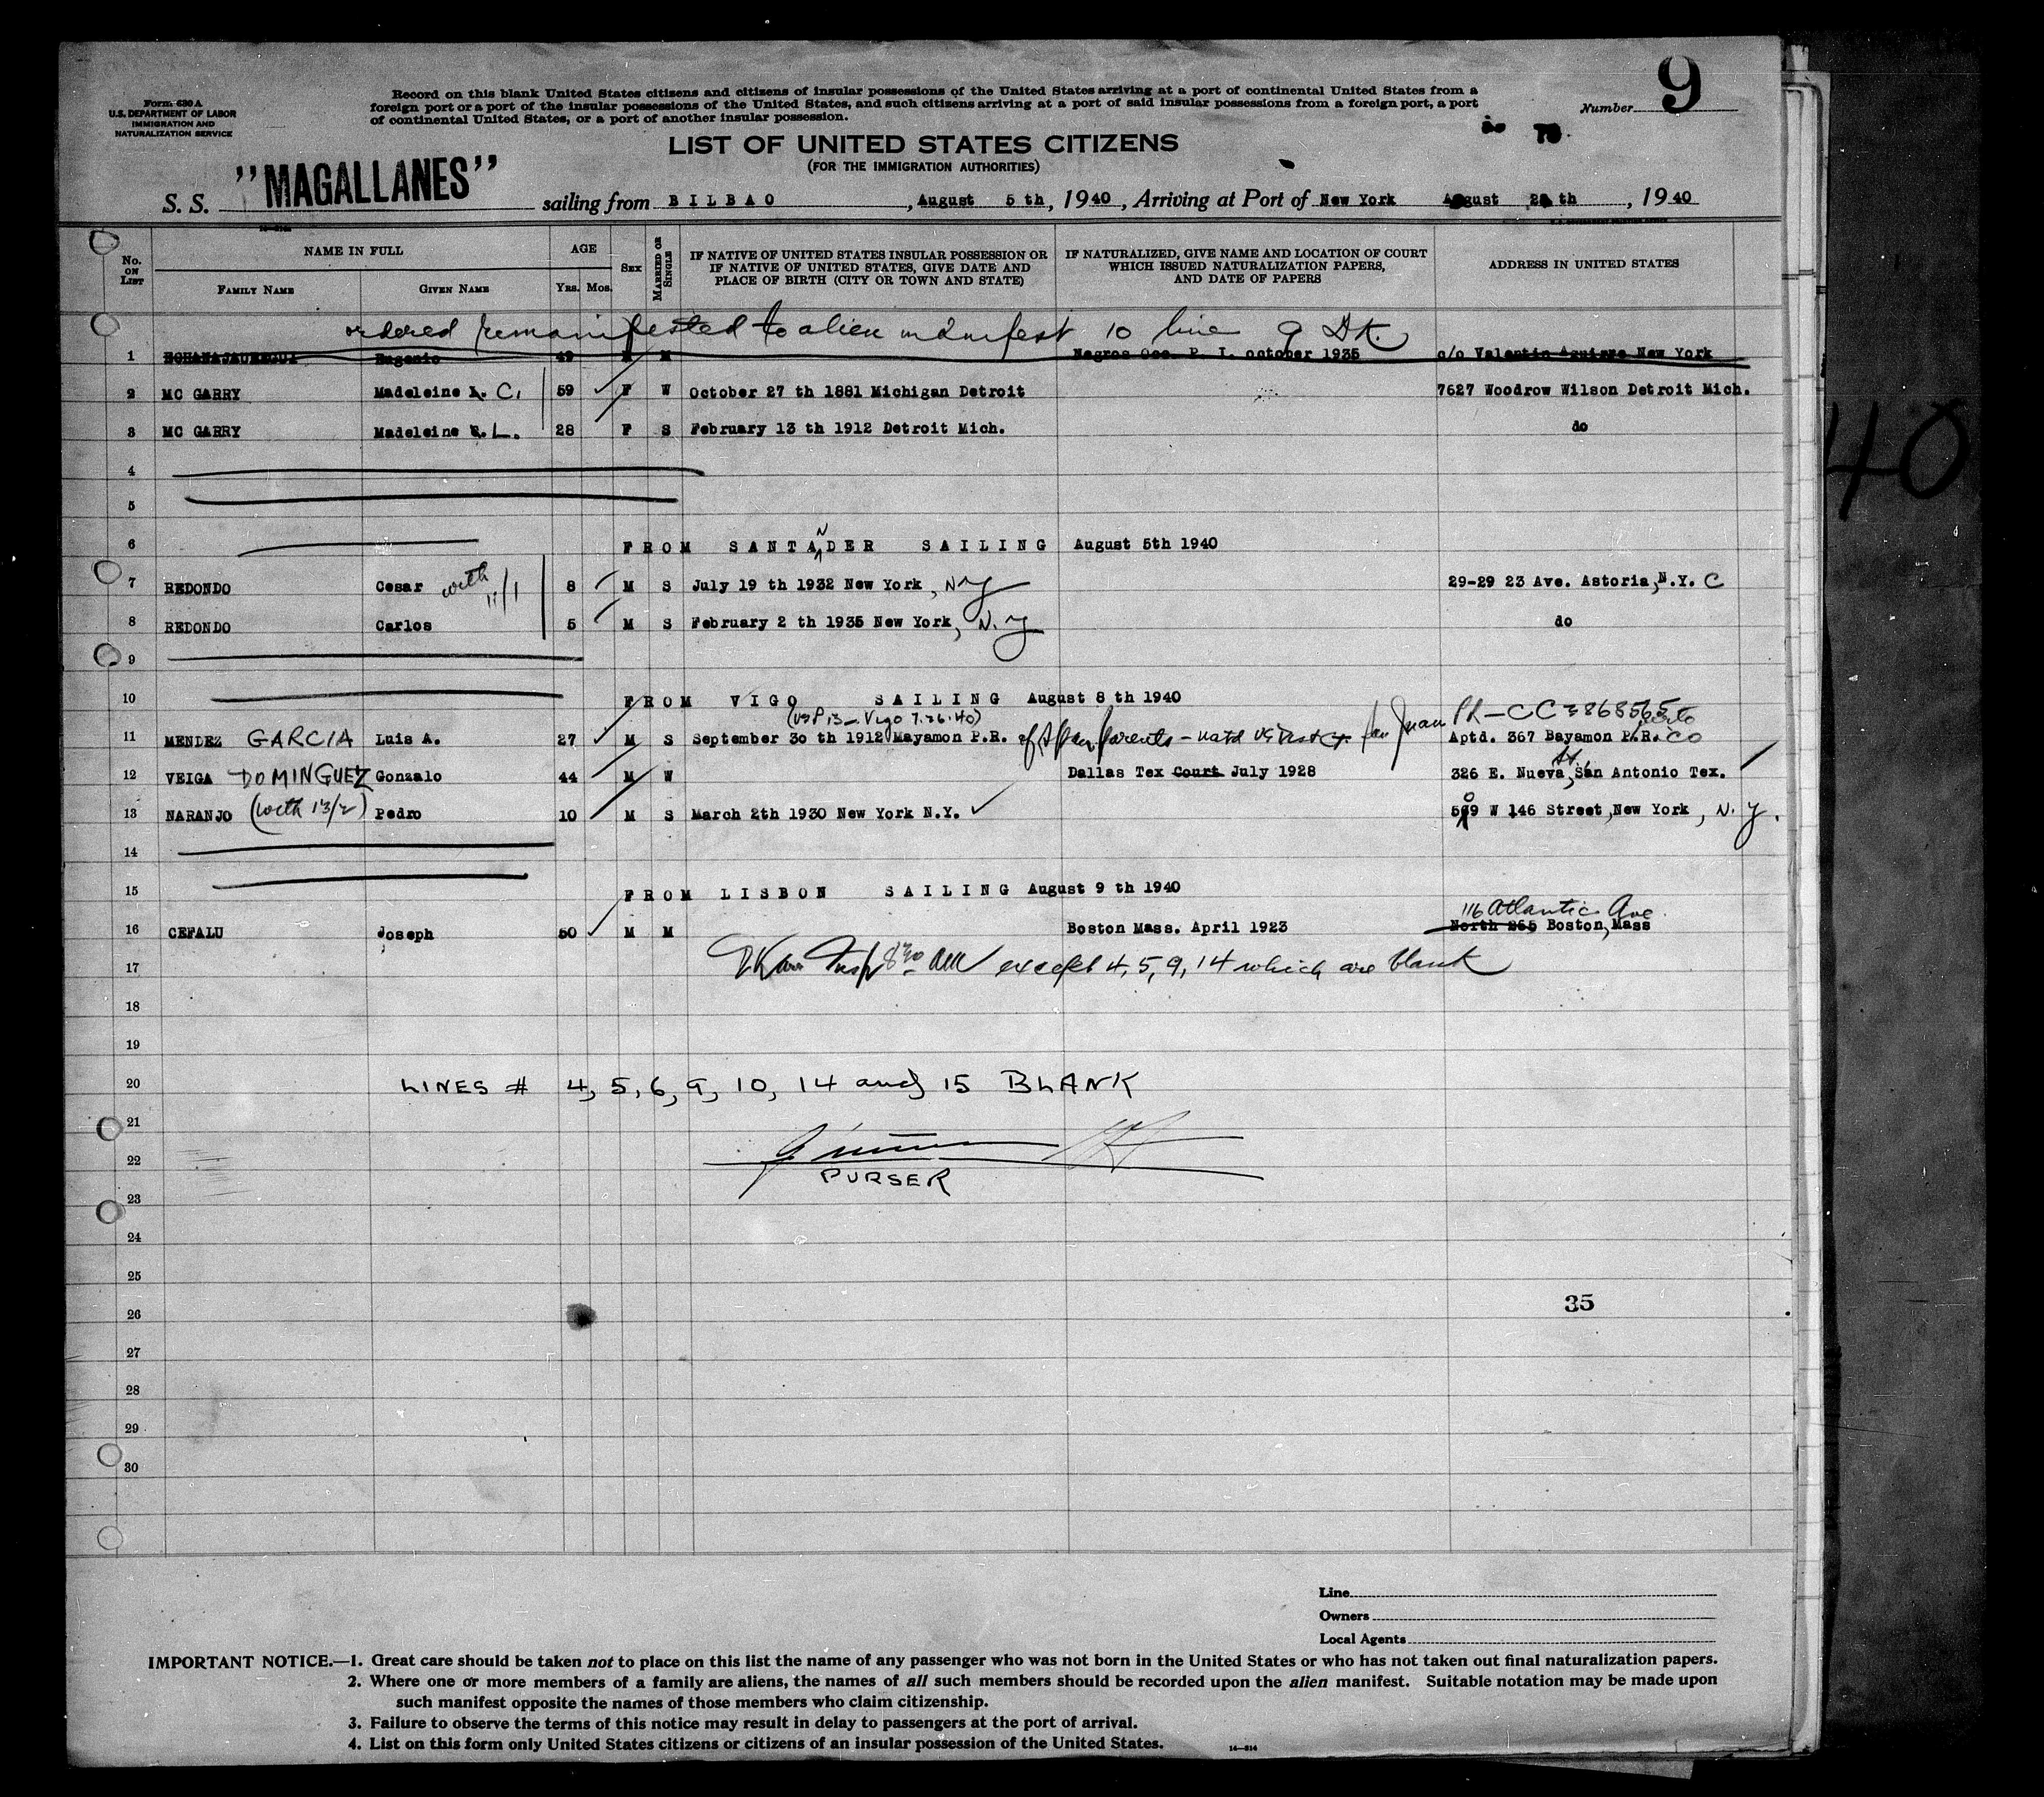 9
Form 630 A
U.S. DEPARTMENT OF LABOR
IMMIGRATION AND
NATURALIZATION SERVICE
Record on this blank United States citizens and citizens of insular possessions of the United States arriving at a port of continental United States from a
foreign port or a port of the insular possessions of the United States, and such citizens arriving at a port of said insular possessions from a foreign port, a port
of continental United States, or a port of another insular possession.
Number
78
LIST OF UNITED STATES CITIZENS
(FOR THE IMMIGRATION AUTHORITIES)
S. S. "MAGALLANES" sailing from BILBAO, August 5 th, 1940, Arriving at Port of New York August th, 1940
No. ON LIST NAME IN FULL AGE SEX MARRIED OR SINGLE IF NATIVE OF UNITED STATES INSULAR POSSESSION OR IF NATIVE OF UNITED STATES, GIVE DATE AND PLACE OF BIRTH (CITY OR TOWN AND STATE) IF NATURALIZED, GIVE NAME AND LOCATION OF COURT WHICH ISSUED NATURALIZATION PAPERS, AND DATE OF PAPERS ADDRESS IN UNITED STATES
FAMILY NAME GIVEN NAME YRS. MOS.
ordered remanifested to alien manifest 10 line 9 DK.
1 ECHANAJAUREGUI Eugenio 49 M M Negros Occ. P. I. october 1935 c/o Valentin Aguirre New York
2 MC GARRY Madeleine C. 59 F W October 27 th 1881 Michigan Detroit 7627 Woodrow Wilson Detroit Mich.
3 MC GARRY Madeleine L. 28 F S February 13 th 1912 Detroit Mich. do
4
5
6 FROM SANTANDER SAILING August 5th 1940
7 REDONDO Cesar with 11/1 8 M S July 19 th 1932 New York, NY 29-29 23 Ave. Astoria, N.Y. C
8 REDONDO Carlos 5 M S February 2 th 1935 New York, N.Y do
9
10 FROM VIGO SAILING August 8 th 1940
(USP 13 - Vigo 7.26.40) San Juan PR - CC 3868565
11 MENDEZ GARCIA Luis A. 27 M S September 30 th 1912 Mayamon P.R. of Span parents - natd US Dist Ct. Aptd. 367 Bayamon P.R.
12 VEIGA DOMINGUEZ Gonzalo 44 M W Dallas Tex Court July 1928 326 E. Nueva St, San Antonio Tex.
13 NARANJO (with 13/2) Pedro 10 M S March 2th 1930 New York N.Y. 509 W 146 Street, New York, N.Y.
14
15 FROM LISBON SAILING August 9 th 1940
116 Atlantic Ave.
16 CEFALU Joseph 50 M M Boston Mass. April 1923 North 265 Boston, Mass
17 Insp 8 30 AM except 4, 5, 9, 14 which are blank
18
19
20 LINES # 4, 5, 6, 9, 10, 14 and 15 BLANK
21
22
PURSER
23
24
25
35
26
27
28
29
30
40
Line
Owners
Local Agents
IMPORTANT NOTICE.—1. Great care should be taken not to place on this list the name of any passenger who was not born in the United States or who has not taken out final naturalization papers.
2. Where one or more members of a family are aliens, the names of all such members should be recorded upon the alien manifest. Suitable notation may be made upon
such manifest opposite the names of those members who claim citizenship.
3. Failure to observe the terms of this notice may result in delay to passengers at the port of arrival.
4. List on this form only United States citizens or citizens of an insular possession of the United States.
14—814